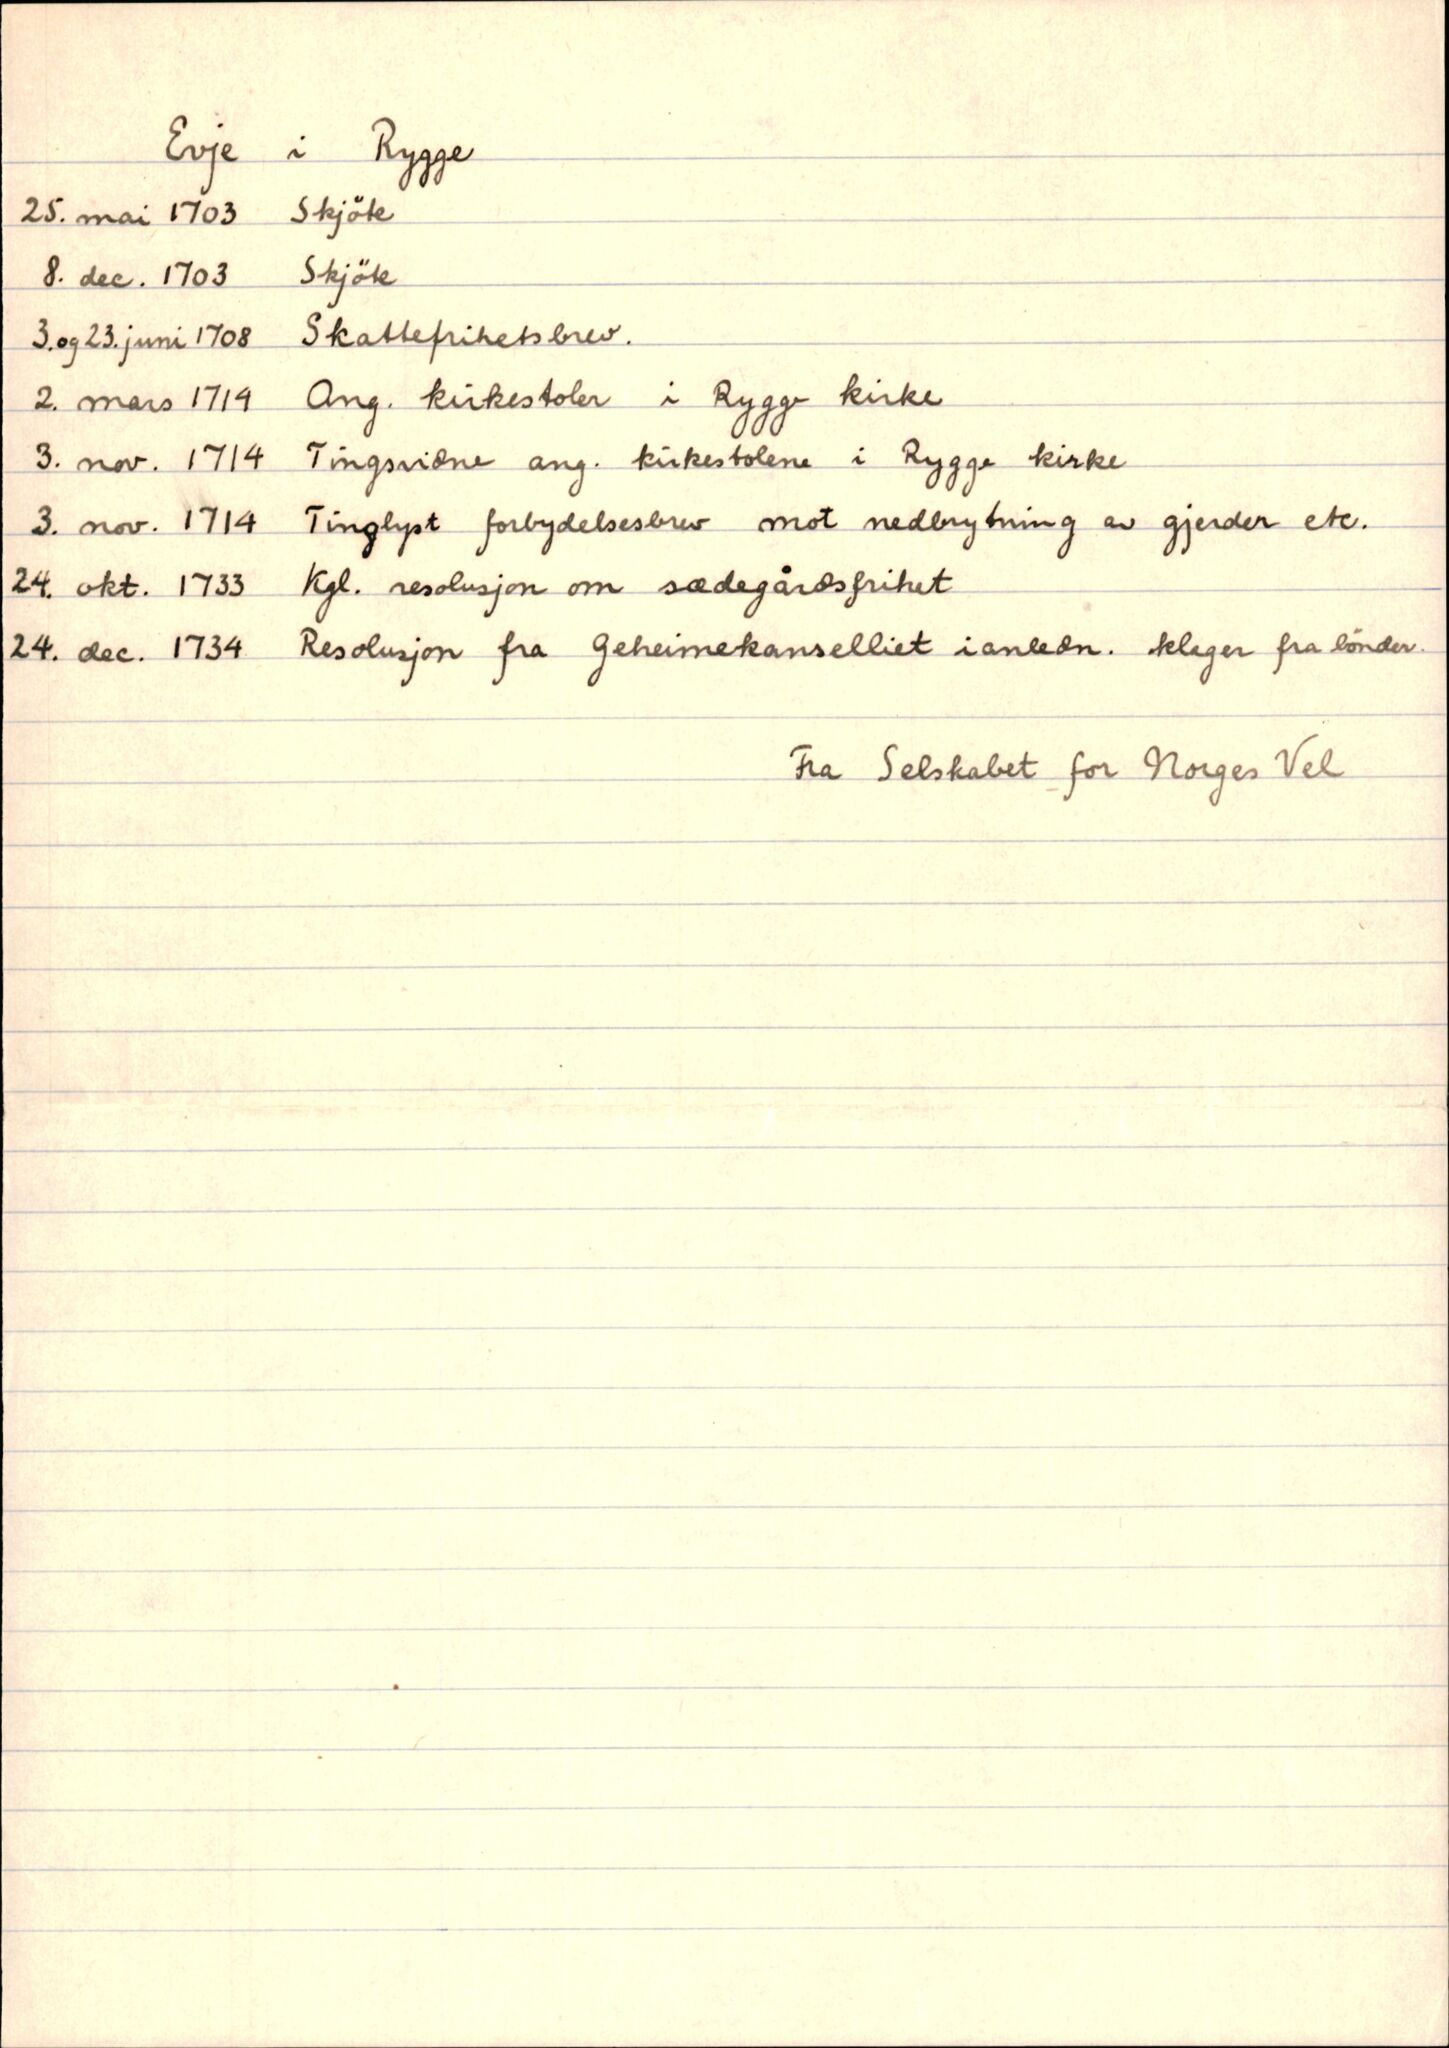 Evje i Rygge
25. mai 1703 Skjöte
8. dec. 1703 Skjöte
3. og 23. juni 1708 Skattefrihetsbrev.
2. mars 1714 Ang. kirkestoler i Rygge kirke
3. nov. 1714 Tingsvidne ang. kirkestolene i Rygge kirke
3. nov. 1714 Tinglyst forbydelsesbrev mot nedbrytning av gjerder etc.
24. okt. 1733 Kgl. resolusjon om sædegårdsfrihet
24. dec. 1734 Resolusjon fra Geheimekanselliet i anledn. klager fra bönder.
Fra Selskabet for Norges Vel